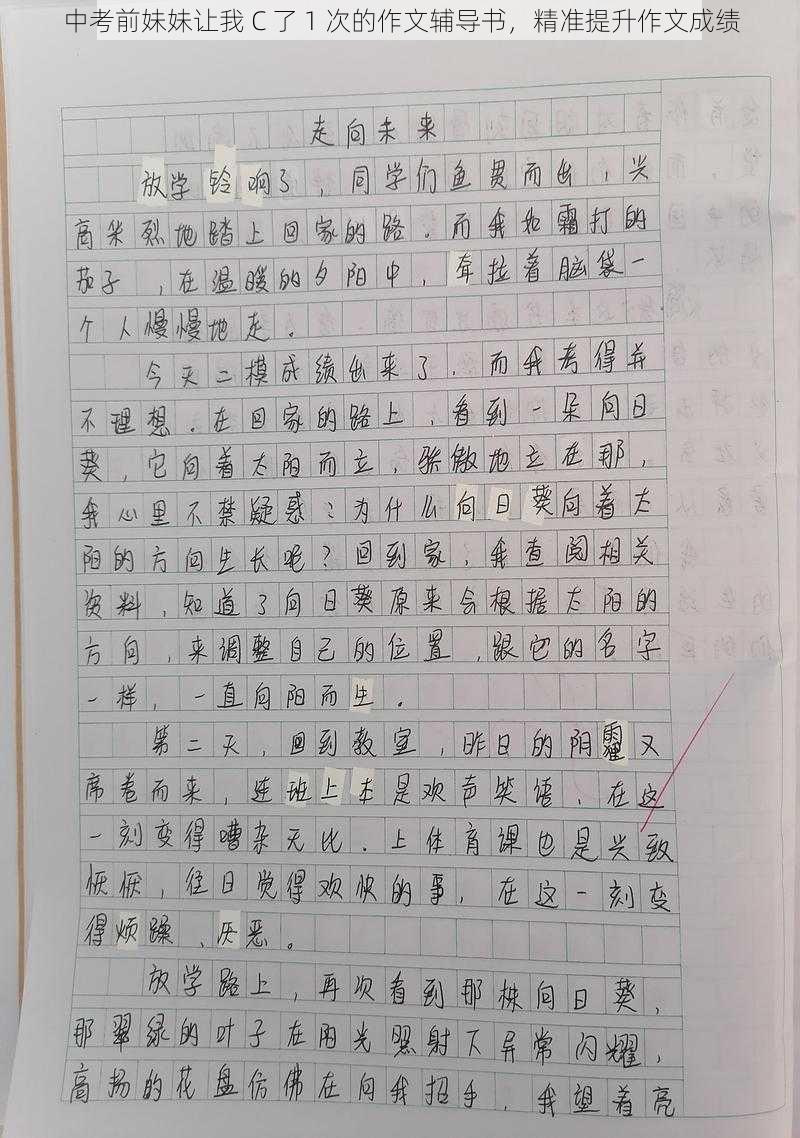 中考前妹妹让我 C 了 1 次的作文辅导书，精准提升作文成绩
走向未来
放学铃响了，同学们鱼贯而出，兴
高采烈地踏上回家的路．而我如霜打的
茄子，在温暖的夕阳中，耷拉着脑袋一
个人慢慢地走。
今天二模成绩出来了．而我考得并
不理想．在回家的路上，看到一朵向日
葵，它向着太阳而立，骄傲地立在那，
我心里不禁疑惑：为什么向日葵向着太
阳的方向生长呢？回到家，我查阅相关
资料，知道了向日葵原来会根据太阳的
方向，来调整自己的位置，跟它的名字
一样，一直向阳而生．
第二天，回到教室，昨日的阴霾又
席卷而来，连班上本是欢声笑语，在这
一刻变得嘈杂无比．上体育课也是兴致
恹恹，往日觉得欢快的事，在这一刻变
得烦躁、厌恶。
放学路上，再次看到那株向日葵，
那翠绿的叶子在阳光照射下异常闪耀，
高扬的花盘仿佛在向我招手，我望着亮